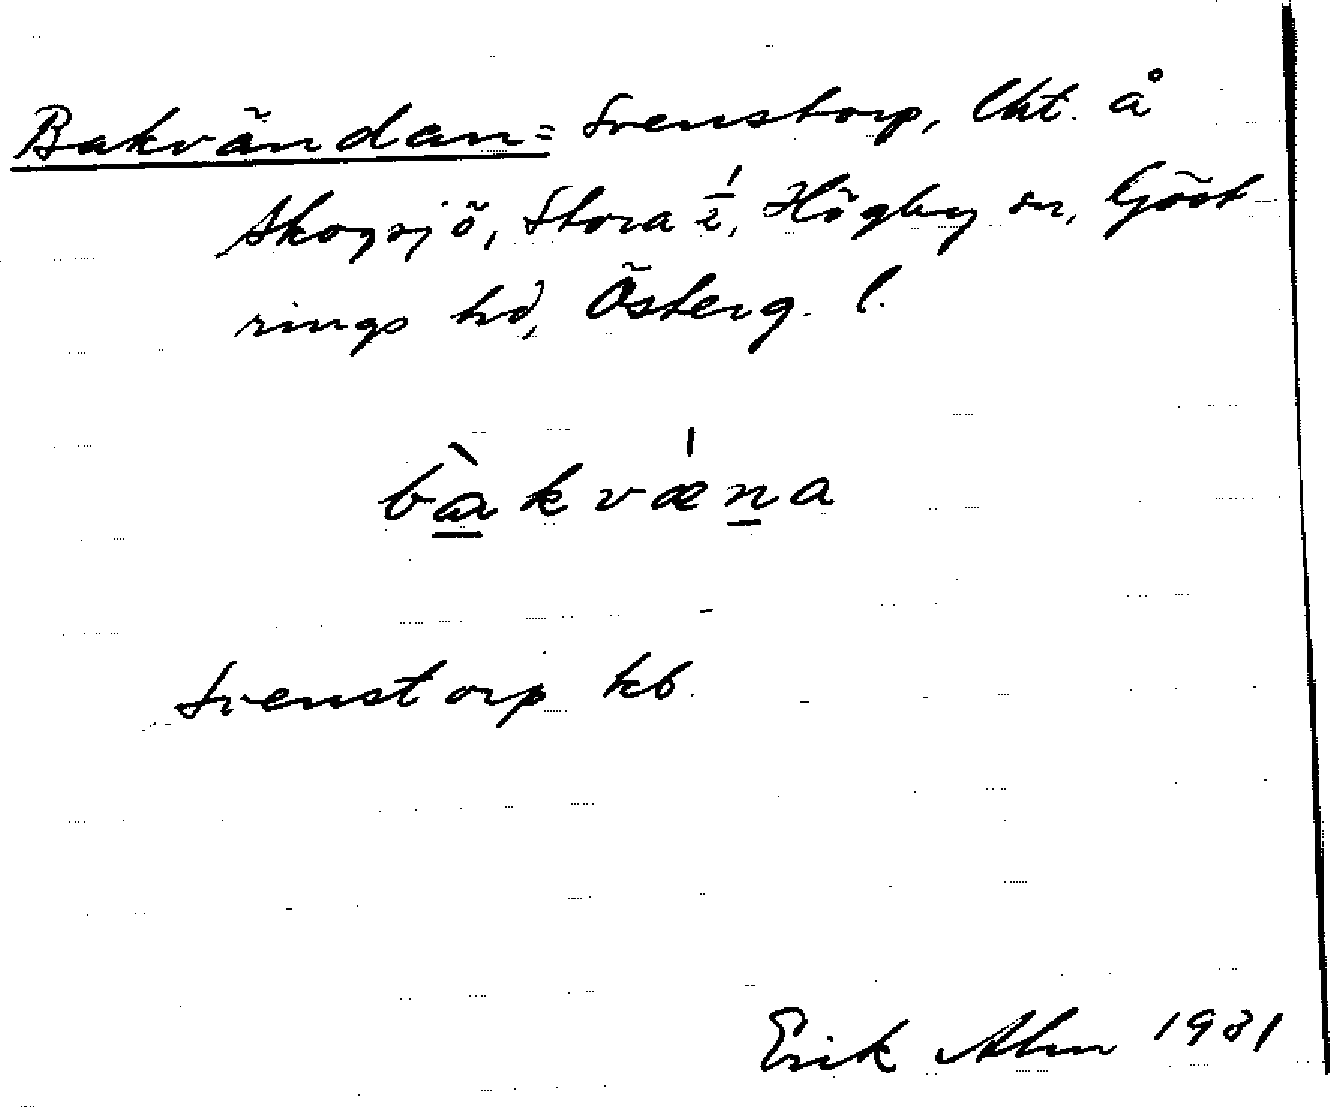 Bakvändan = Svenstorp, lht. å
Skogsjö, Stora 1/2, Högby sn, Göst
rings hd, Österg. l.
bàkvǽna
Svenstorp kb.
Erik Alm 1931